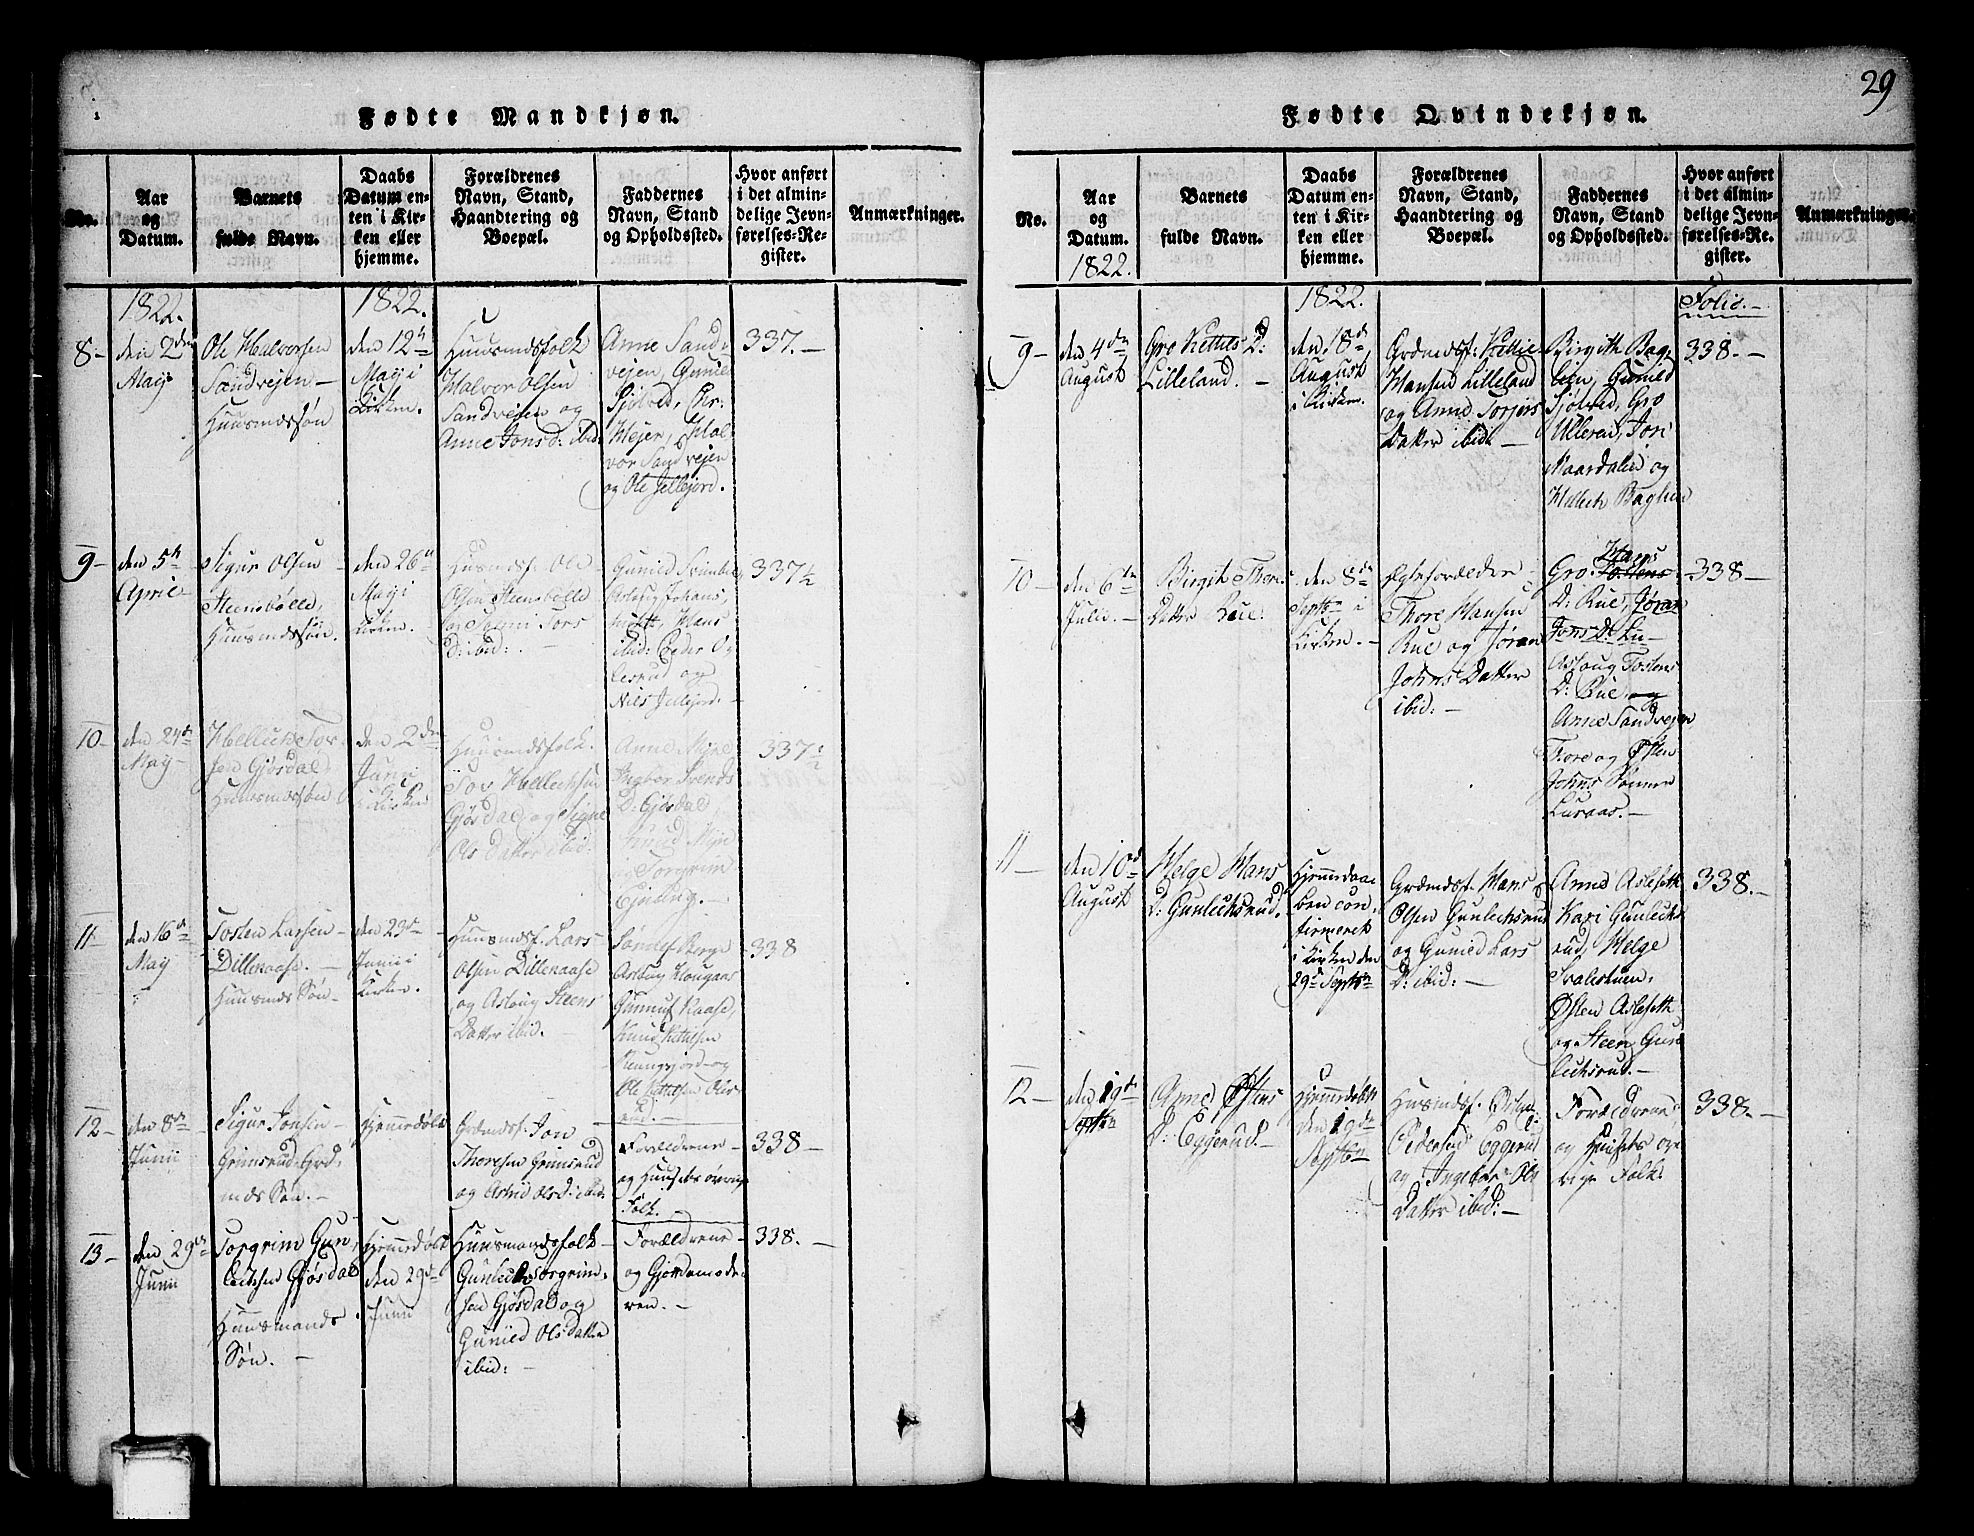 29
Fødte Mandkjøn.
No.
Aar
og
Datum.
Barnets
fulde Navn.
Daabs
Datum en-
ten i Kir-
ken eller
hjemme.
Forældrenes
Navn, Stand,
Haandtering og
Boepæl.
Faddernes
Navn, Stand
og Opholdssted.
Hvor anført
i det almin-
delige Jevn-
førelses-Re-
gister.
Anmærkninger.
1822.
1822.
8 –
den 2den
May
Ole Halvorsen
Sandvejen –
Huusmdssøn
den 12te
May i
Kirken.
Huusmdsfolk
Halvor Olsen
Sandvejen og
Anne Jonsd: ibid:
Anne Sand
vejen, Gunild
Sjøtved,
Hal-
vor Sandvejen
og Ole Jellejord.
337. –
9 –
den 5te
April
Sigur Olsen
Steensbølle,
Huusmdssøn.
den 26de
May i
Kirken. –
Huusmdsf. Ole
Olsen Steensbølle
og Tors
D: ibid: –
Gunild
Aslaug Johans,
Hans
ibid: Peder O-
lesrud og
Nils Jellejord. –
337½
10 –
den 24de
May –
Hellich Tov-
sen Gjøsdal,
Huusmdssøn
den 2den
Junii
i Kirken
Huusmdsfolk.
Tov Hellichsen
Gjøsdal og Signe
Ols Datter ibid:
Anne
Ingbor Svends
D: Gjøsdal,
Torgrim
337½
11 –
den 16de
May
Tosten Larsen –
Dillenaase. –
Huusmds Søn –
den 23de
Junii i
Kirken.
Huusmdsf. Lars
Olsen Dillenaase
og Aslaug Steens
Datter ibid. –
Aslaug Hougaas
Gunnuf Kaase,
Knud Kittelsen
og
Ole Kittelsen
338
12 –
den 8de
Junii
Sigur Jonsen –
Grimsrud, Grd,
mds Søn. –
Hjemmedøbt
Grdmdsf. Jon
Thoresen Grimsrud
og Astrid Olsd: ibid:
Forældrene –
og Huusets øvrige
Folk.
338 –
13 –
den 29de
Junii
Torgrim Gun,
leichsen Gjøsdal
Huusmands
Søn. –
Hjemmedøbt
den 29de
Junii
Huusmandsfolk –
Gunleich Torgrim-
sen Gjøsdal og
Gunild Olsdatter
ibid: –
Forældrene –
og Gjordemode-
ren. –
338. –
Fødte Qvindekjøn.
No.
Aar
og
Datum.
1822.
Barnets
fulde Navn.
Daabs
Datum en-
ten i Kir-
ken eller
hjemme.
Forældrenes
Navn, Stand,
Haandtering og
Boepæl.
Faddernes
Navn, Stand
og Opholdssted.
Hvor anført
i det almin-
delige Jevn-
førelses-Re-
gister.
Anmærkninger.
1822.
Folio. –
9 –
den 4de
August
Gro Kettils D:
Lilleland. –
den 18de
August
i Kirken.
Grdmdsf: Kettil
Hansen Lilleland
og Anne Torjers
Datter ibid: –
Birgith Bag-
lien, Gunild
Sjøtved, Gro
Ulleren, Jon
Maardalen og
Hellech Baglien
338. –
10 –
den 6te
Julii. –
Birgit Thores
Datter Rue:
den 8de
Septbr i
Kirken. –
Ægteforælder –
Thore Hansen
Rue og Jøran
Johns Datter
ibid: –
Gro Hans
D: Rue, Jøran
Jons D: Lu–
Aslaug Tostens
D: Rue, og
Anne Sandvejen
Thore og Østen
Johns Sønner
Luraas. –
338 –
11 –
den 10de
August
Helge Hans
D: Gunlechsrud.
Hjemmedaa-
ben con-
firmeret
i Kirken den
29de Septbr
Grdmdsf. Hans
Olsen Gunlechsrud
og Gunild Lars
D: ibid: –
Anne Aslesett
Kari Gunlechs
rud, Helge
Østen Aslesett
og Steen Gun
lechsrud. –
338. –
12 –
den 19de
Septbr
Anne Østens
D: Eggerud. –
Hjemmedøbt
den 19de
Septbr
Huusmdsf. Østen
Pedersen Eggerud
og Ingebor Ols
Datter ibid: –
Forældrene
og Huusets øv-
rige Folk.
338. –